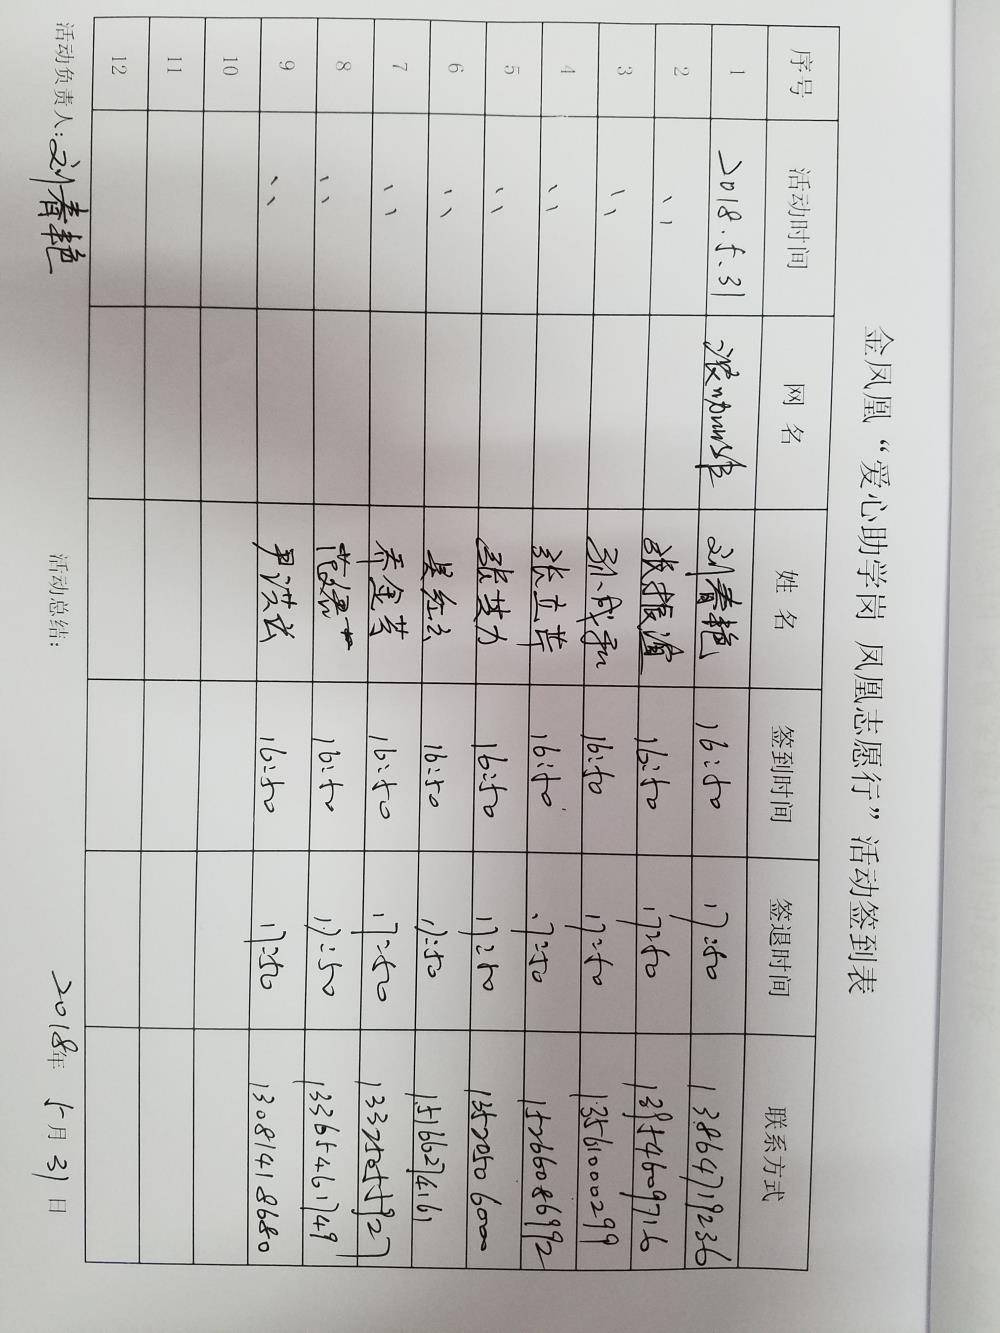 金凤凰“爱心助学岗 凤凰志愿行”活动签到表
序号 活动时间 网名 姓名 签到时间 签退时间 联系方式
1 2018.5.31 刘春艳 16:50 17:50 13864719236
2 〃 16:50 17:50 13954609716
3 〃 16:50 17:50 13561000299
4 〃 张立苹 16:50 17:50 15266086992
5 〃 张英力 16:50 17:50 13520506000
6 〃 吴红云 16:50 17:50 15166274161
7 〃 乔金芳 16:50 17:50 13325055927
8 〃 16:50 17:50 13365461749
9 〃 尹洪兹 16:50 17:50 13081418680
10
11
12
活动负责人：刘春艳 活动总结： 2018年 5月 31日